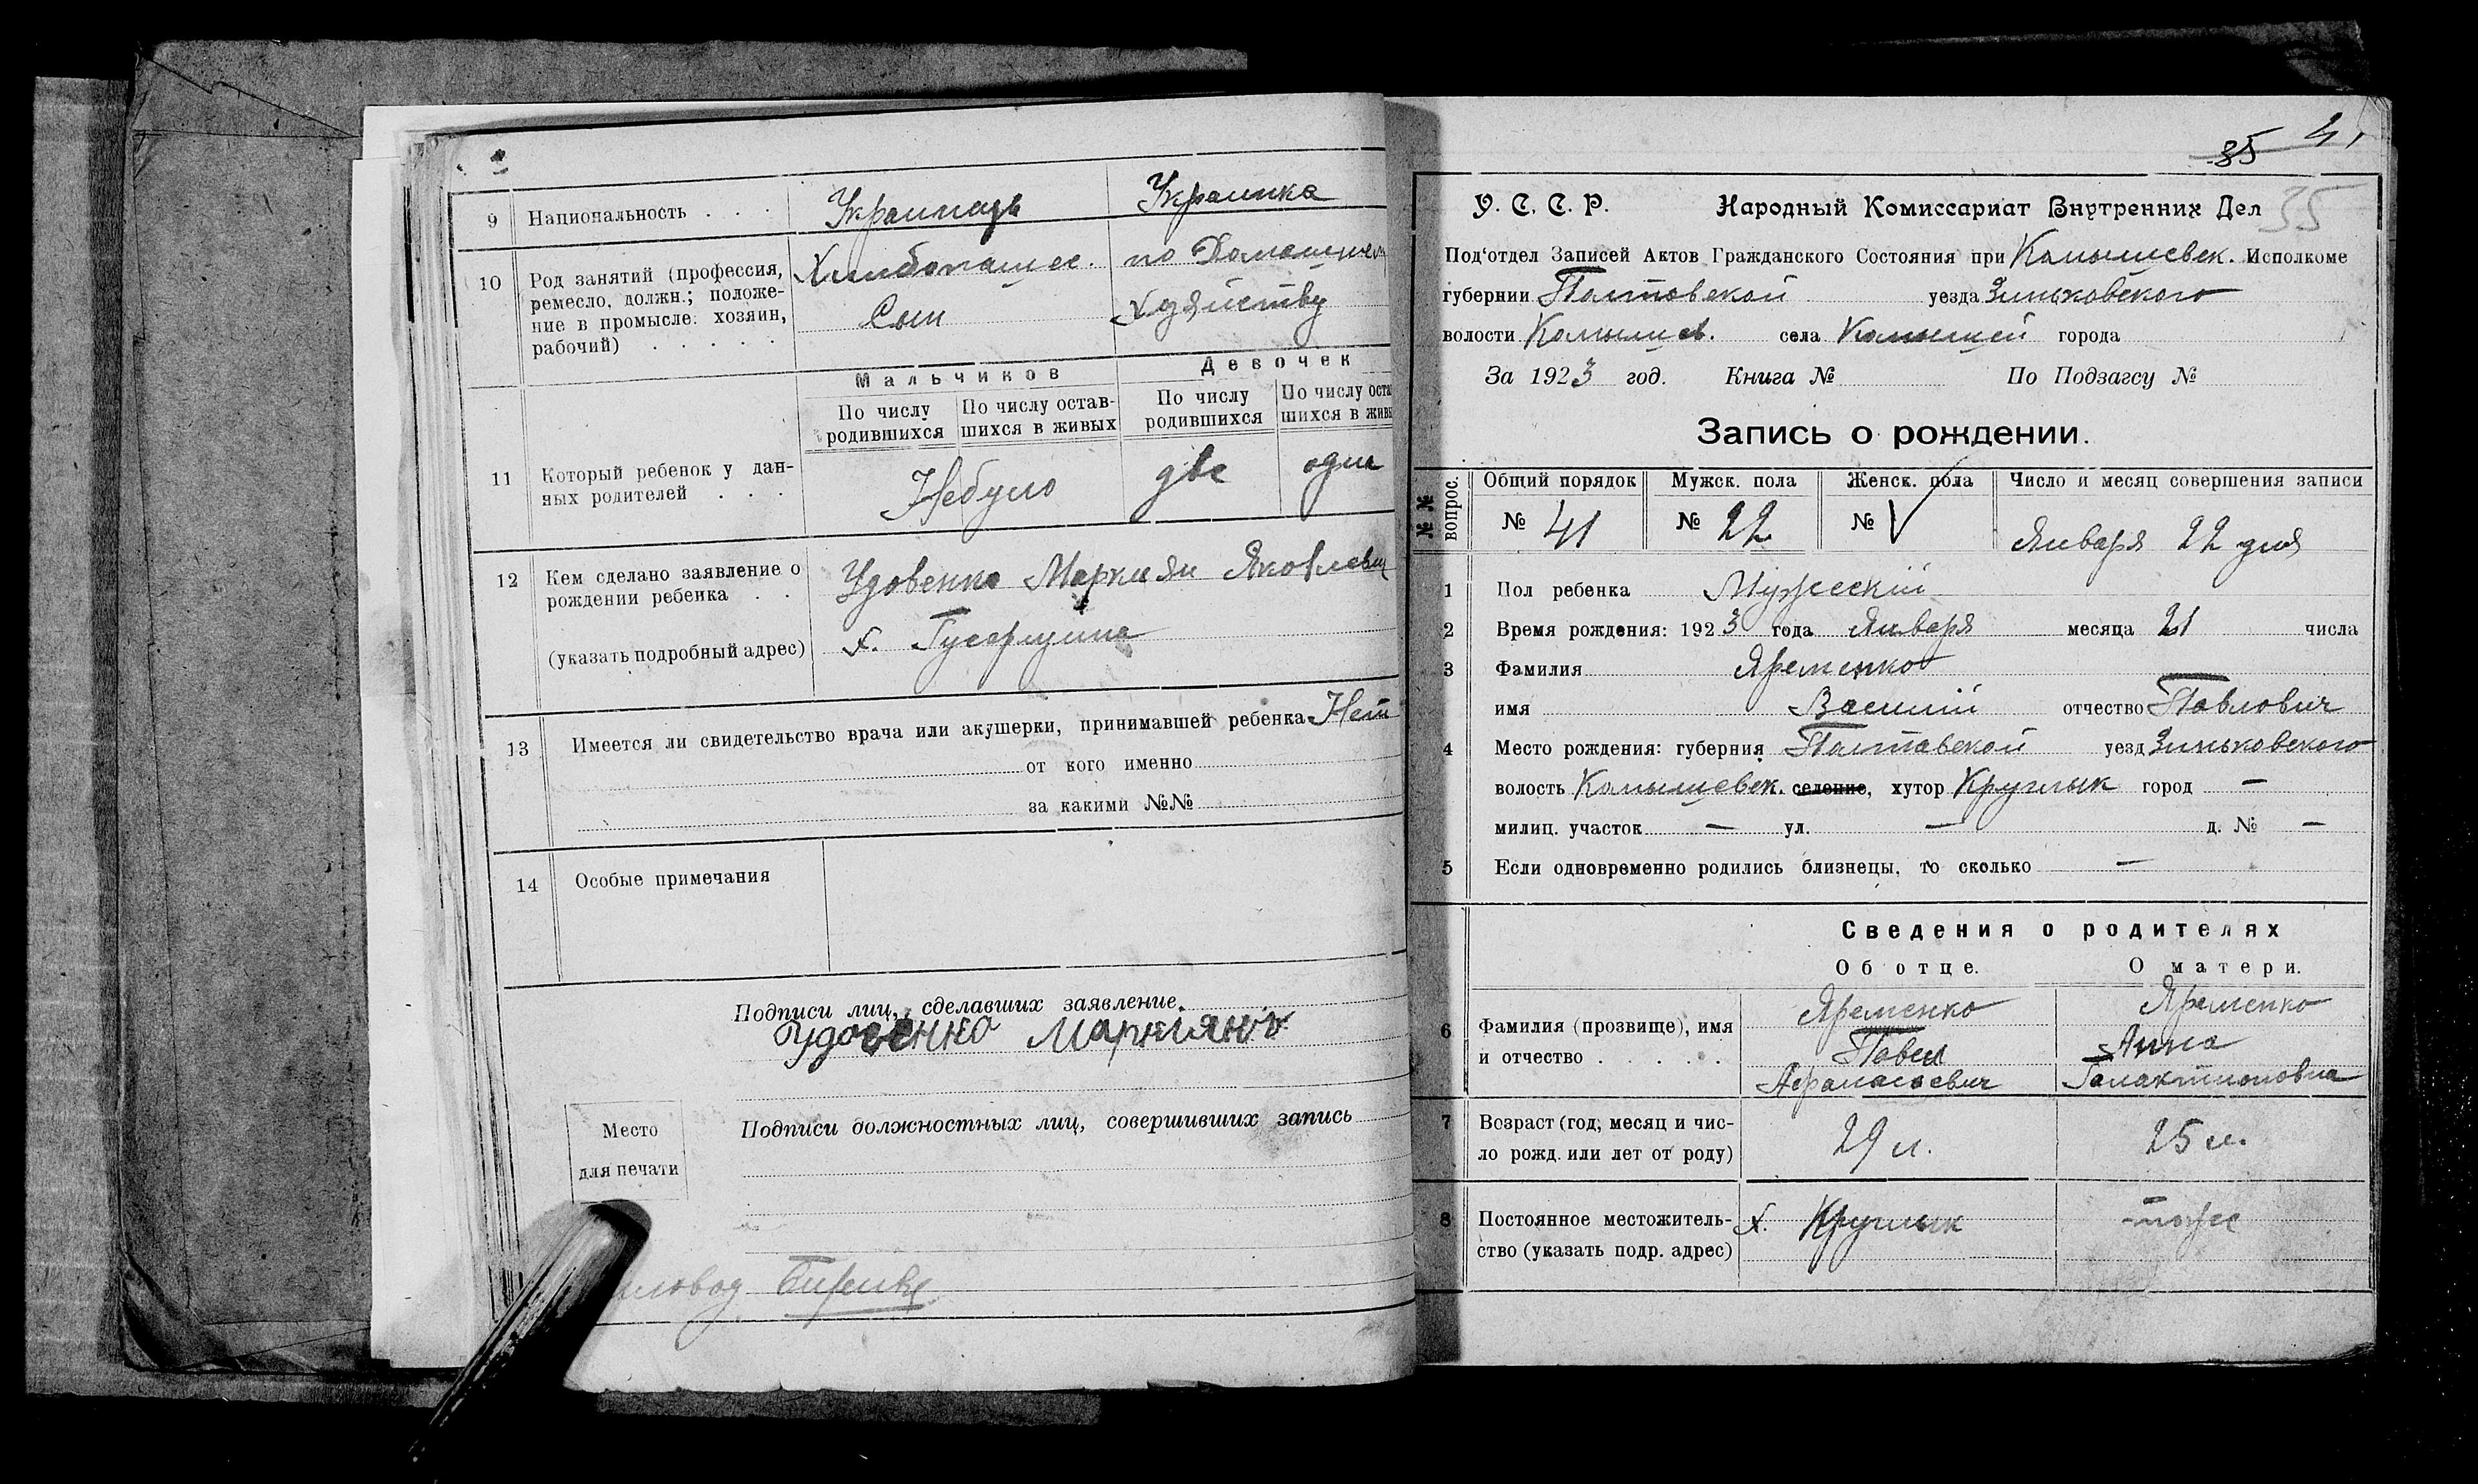 9 Национальность . . . Украинець Украинка
10 Род занятий (профессия, Хлибопашес. по Домашнем
ремесло, должн.; положе-
ние в промысле: хозяин, Сын хозяйству
рабочий) . . . . .
Мальчиков Девочек
По числу родившихся По числу остав-шихся в живых По числу родившихся По числу оста шихся в живы
11 Который ребенок у дан-
ных родителей . . . Небуло две одна
12 Кем сделано заявление о Удовенко Маркиян Яковлевич
рождении ребенка . .
(указать подробный адрес) х.
13 Имеется ли свидетельство врача или акушерки, принимавшей ребенка Нет
от кого именно
за какими №№
14 Особые примечания
Подписи лиц, сделавших заявление.
Удовенко Маркиянъ
Место
для печати
Подписи должностных лиц, совершивших запись
85 41
У. С. С. Р. Народный Комиссариат Внутренних Дел 35
Под'отдел Записей Актов Гражданского Состояния при Камышевск. Исполкоме
губернии Полтавской уезда Зиньковского
волости Камышев. села Камышей города
За 1923 год. Книга № По Подзагсу №
Запись о рождении.
№№ вопрос. Общий порядок Мужск. пола Женск. пола Число и месяц совершения записи
№ 41 № 22 № V Января 22 дня
1 Пол ребенка Мужеский
2 Время рождения: 1923 года Января месяца 21 числа
3 Фамилия Яременко
имя Василий отчество Павлович
4 Место рождения: губерния Полтавской уезд Зиньковского
волость Камышевск. селение, хутор Круглык город —
милиц. участок — ул. — д. № —
5 Если одновременно родились близнецы, то сколько —
Сведения о родителях
Об отце. О матери.
Яременко Яременко
6 Фамилия (прозвище), имя
и отчество . . . . . Павел Анна
Афанасиевич Галактионовна
7 Возраст (год, месяц и чис-
ло рожд. или лет от роду) 29 л. 25 л.
8 Постоянное местожитель- х. Круглык тоже
ство (указать подр. адрес)